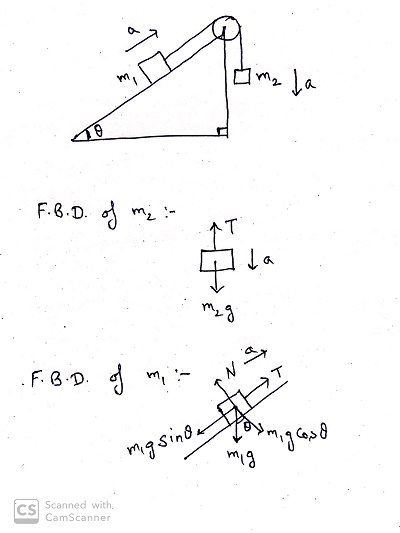 a
m₁
m₂ ↓a
θ
F.B.D. of m₂ :-
T
↓ a
m₂g
F.B.D. of m₁ :-
N a T
m₁g sinθ θ m₁g cosθ
m₁g
CS Scanned with
CamScanner